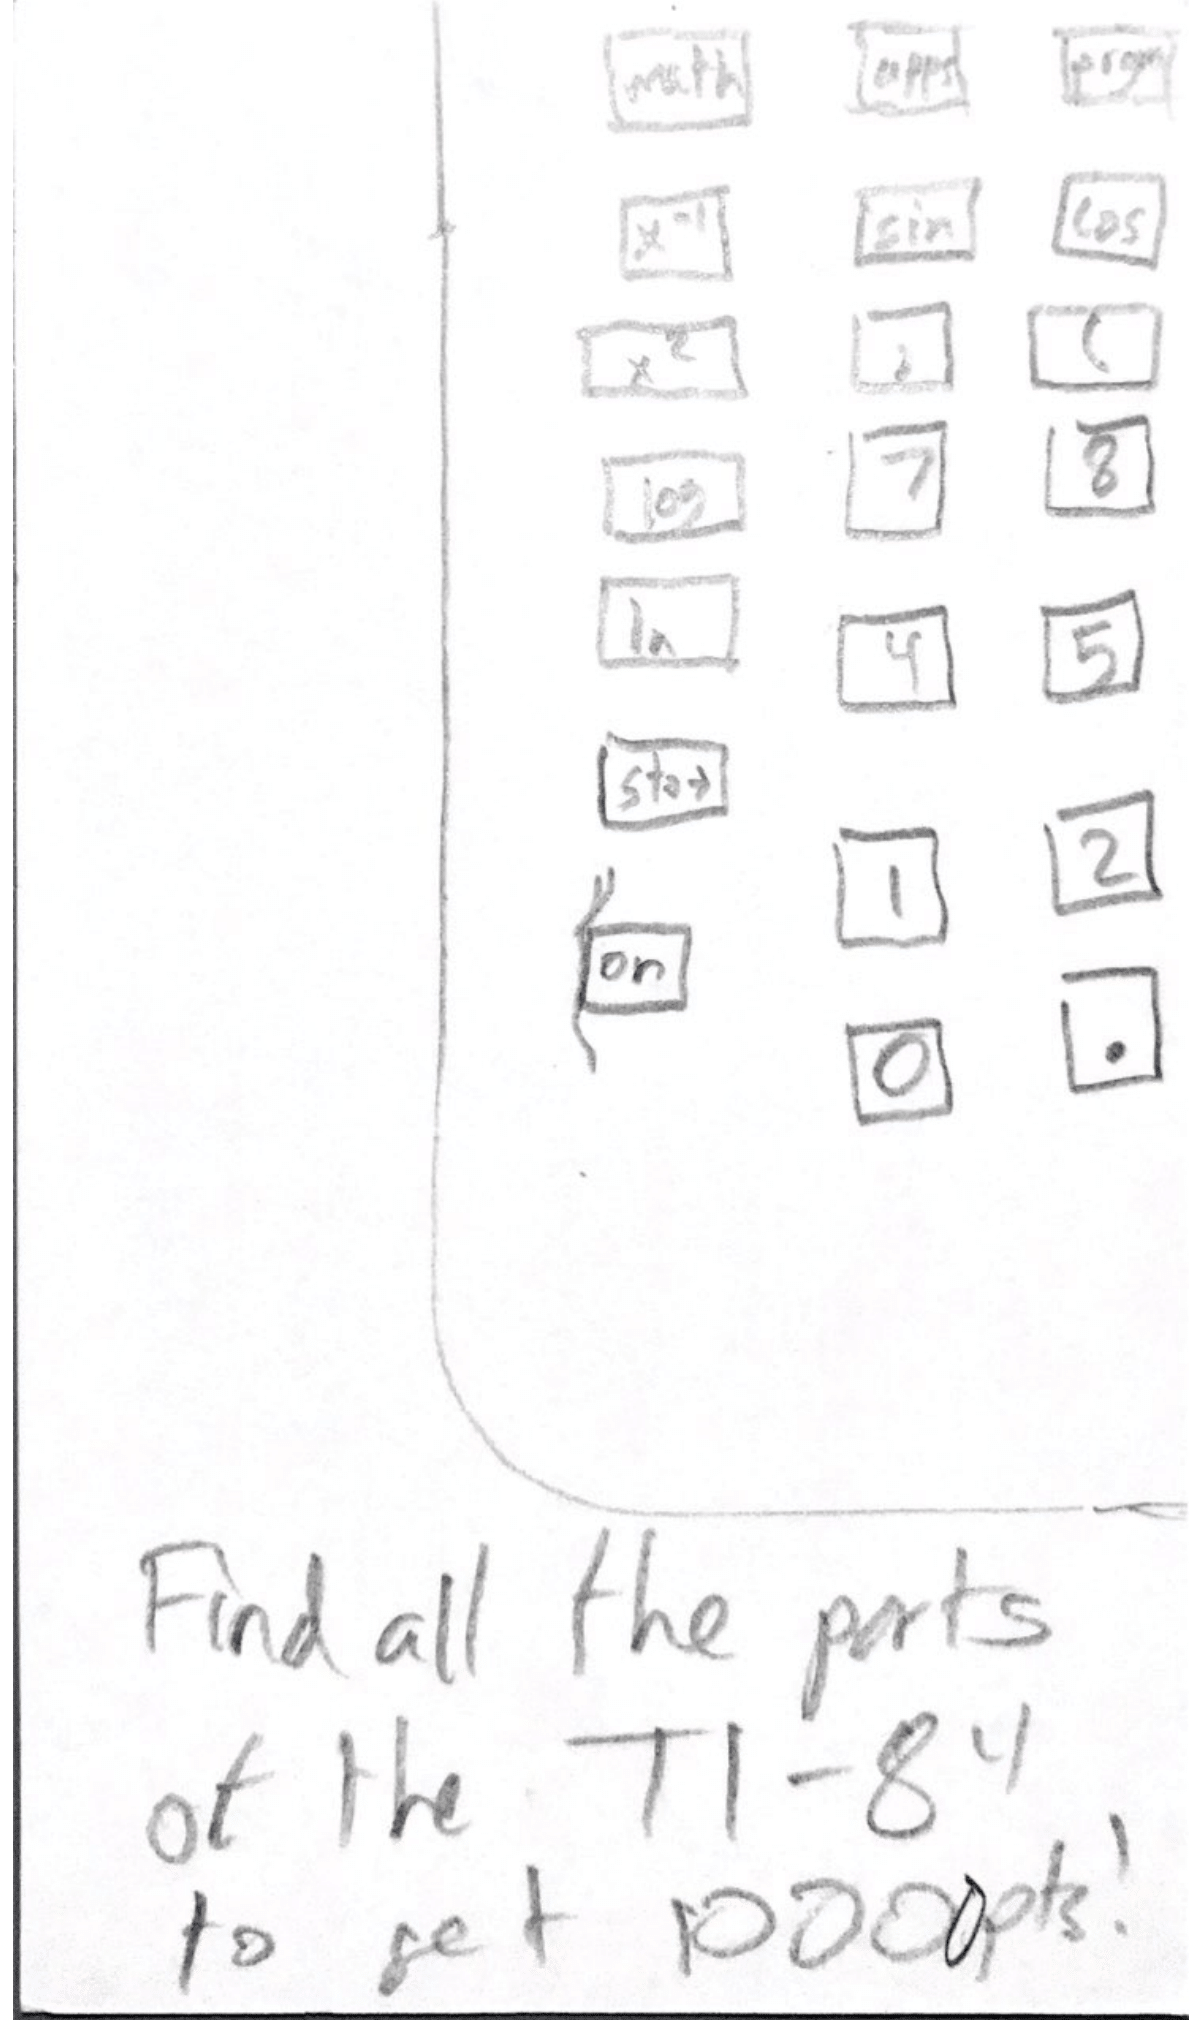 math apps prgm
x⁻¹ sin cos
x² , (
log 7 8
ln 4 5
sto→
1 2
on
0 .
Find all the parts
of the TI-84
to get 10000pts!